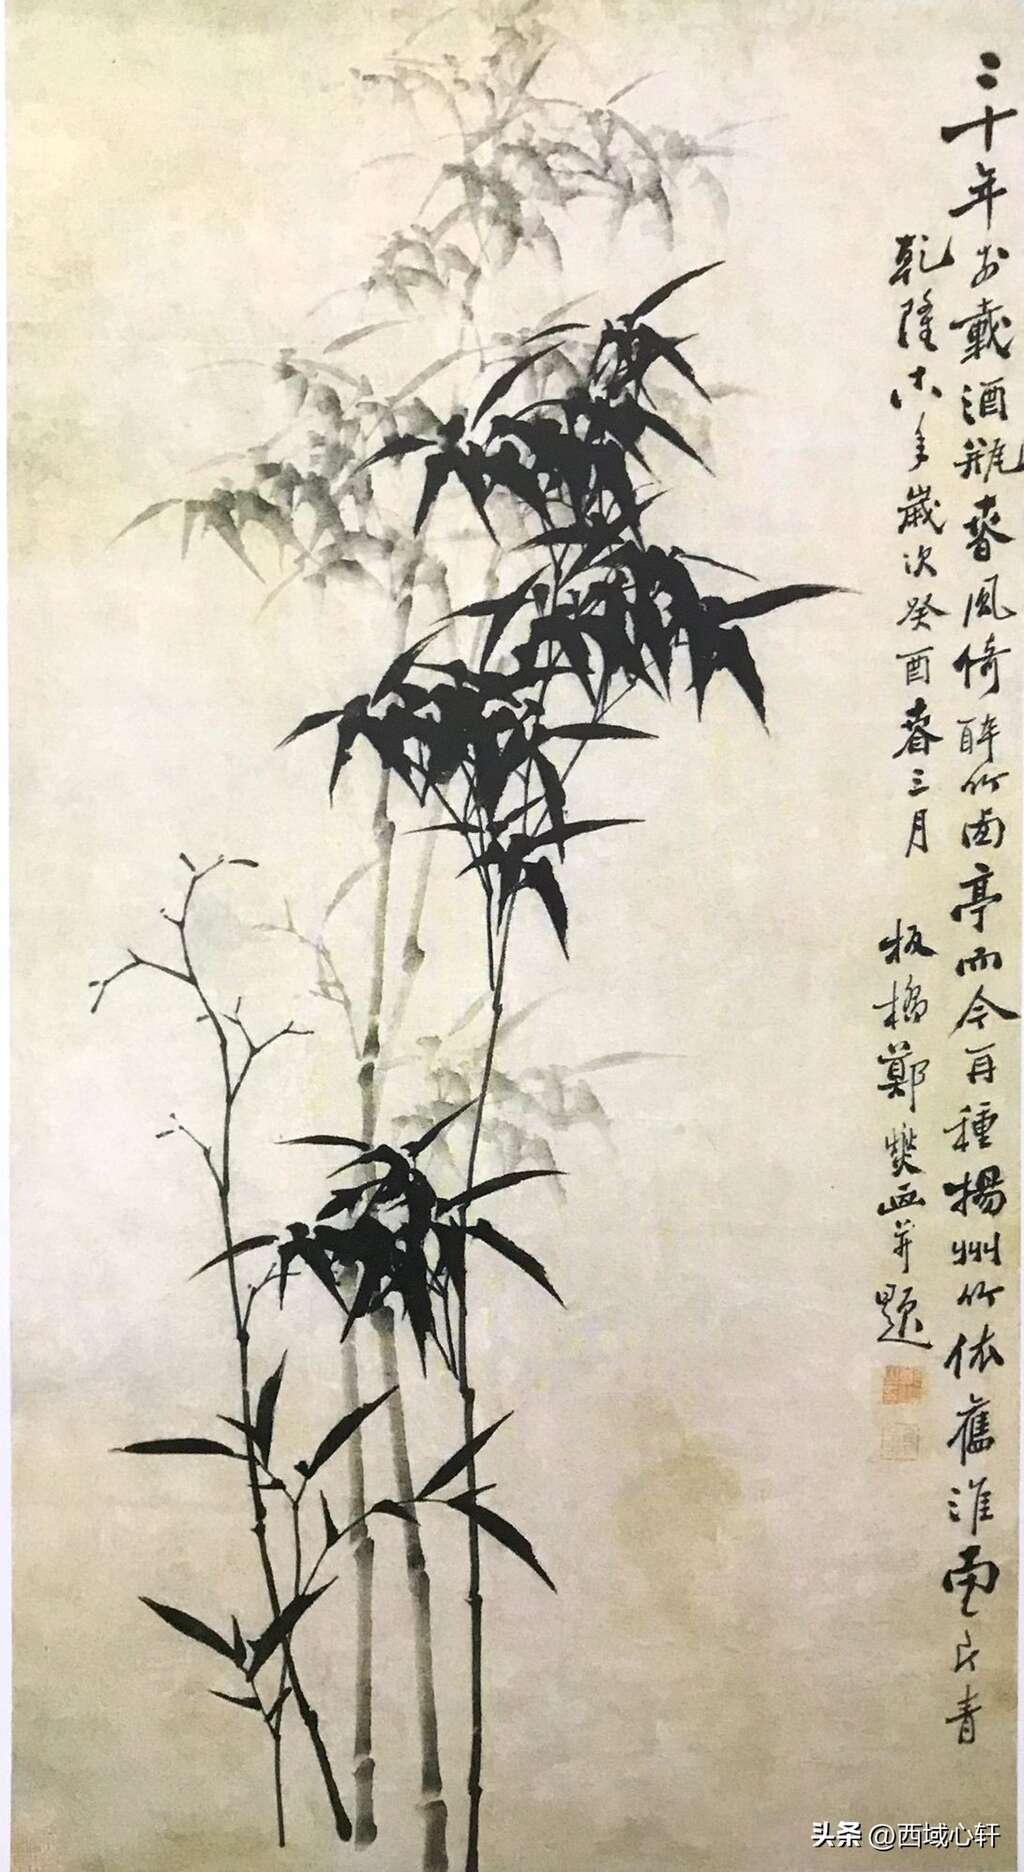 二十年前載酒瓶春風倚醉竹西亭而今再種揚州竹依舊淮南一片青
乾隆十八年歲次癸酉春三月 板橋鄭燮畫并題
头条 @西域心轩